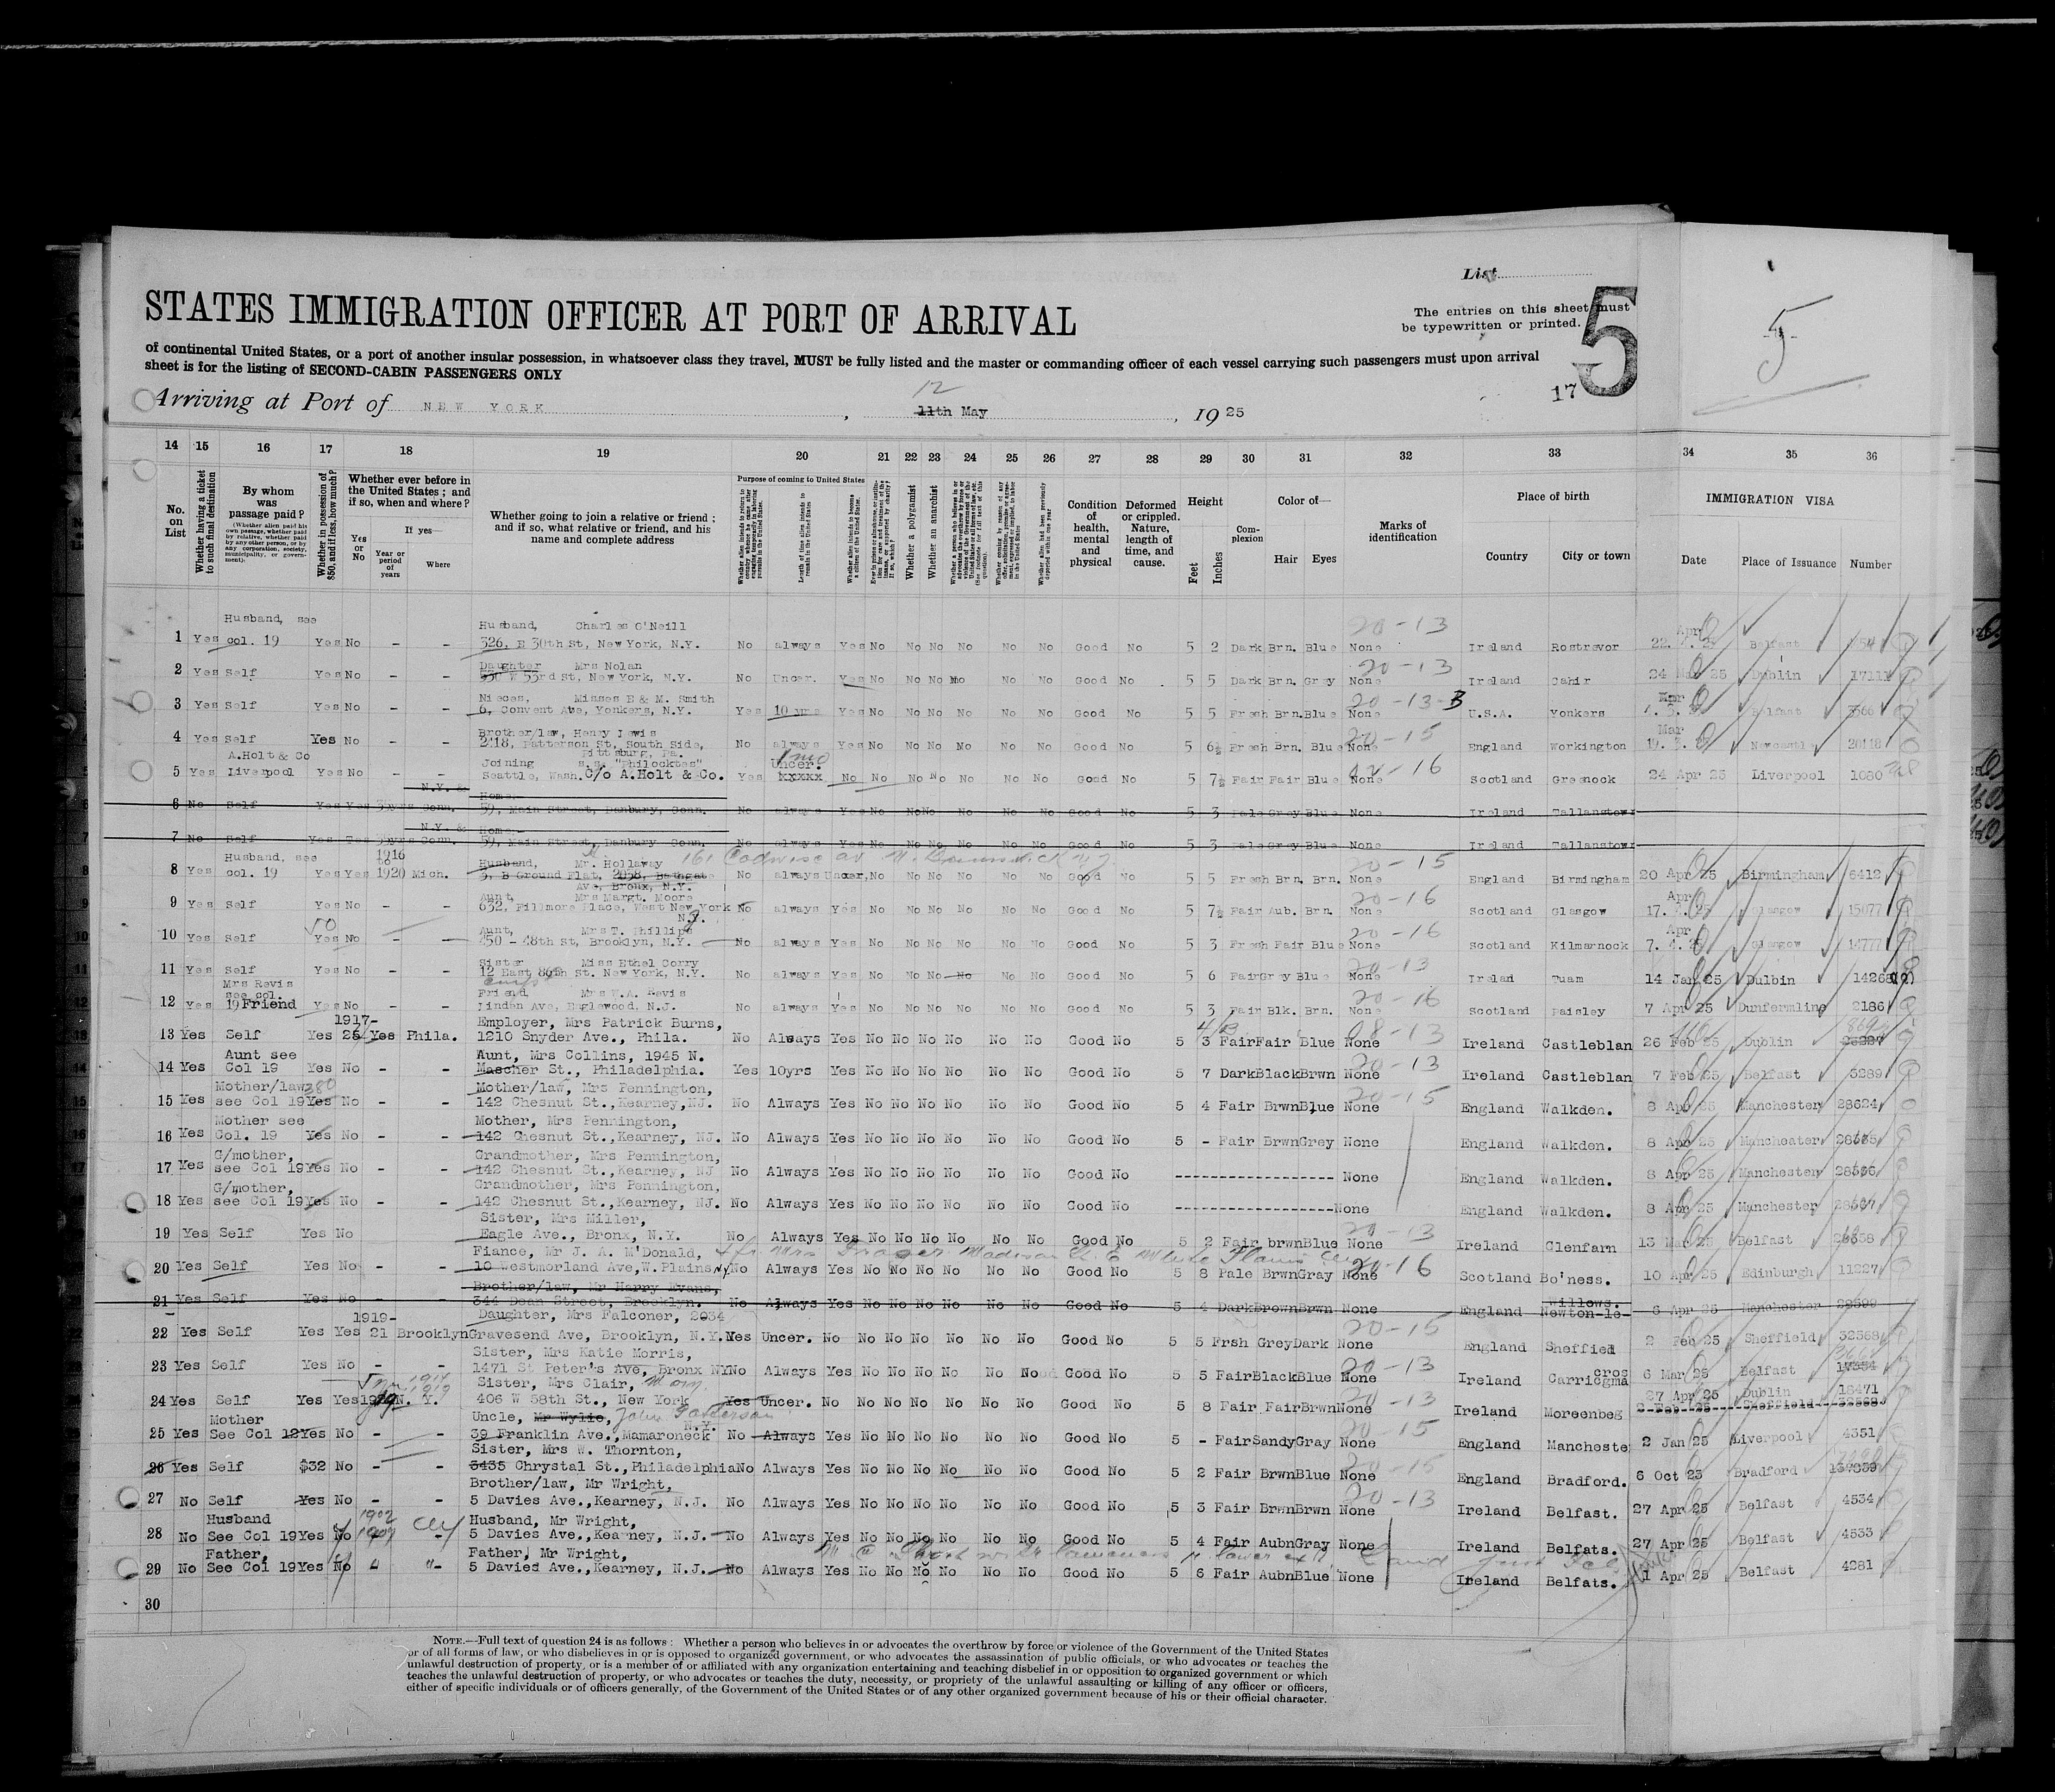 List
STATES IMMIGRATION OFFICER AT PORT OF ARRIVAL
The entries on this sheet must
be typewritten or printed.
5
5
of continental United States, or a port of another insular possession, in whatsoever class they travel, MUST be fully listed and the master or commanding officer of each vessel carrying such passengers must upon arrival
sheet is for the listing of SECOND-CABIN PASSENGERS ONLY
17
12
Arriving at Port of NEW YORK, 11th May, 1925
14 15 16 17 18 19 20 21 22 23 24 25 26 27 28 29 30 31 32 33 34 35 36
No. on List
Whether having a ticket to such final destination
By whom was passage paid?
(Whether alien paid his own passage, whether paid by relative, whether paid by any other person, or by any corporation, society, municipality, or government).
Whether in possession of $50, and if less, how much?
Whether ever before in the United States; and if so, when and where?
If yes—
Yes or No
Year or period of years
Where
Whether going to join a relative or friend; and if so, what relative or friend, and his name and complete address
Purpose of coming to United States
Length of time alien intends to remain in the United States
Whether alien intends to become a citizen of the United States
Whether a polygamist
Whether an anarchist
Condition of health, mental and physical
Deformed or crippled. Nature, length of time, and cause.
Height
Feet
Inches
Complexion
Color of—
Hair
Eyes
Marks of identification
Place of birth
Country
City or town
IMMIGRATION VISA
Date
Place of Issuance
Number
Husband, see Husband, Charles O'Neill 20-13 Apr
1 Yes col. 19 Yes No - - 326, E 30th St, New York, N.Y. No always Yes No No No No No No Good No 5 2 Dark Brn. Blue None Ireland Rostrevor Belfast
Daughter Mrs Nolan 20-13
2 Yes Self Yes No - - W 53rd St, New York, N.Y. No Uncer. Yes No No No No No No Good No 5 5 Dark Brn. Grey None Ireland Cahir 24 25 Dublin
Nieces, Misses E & M. Smith 20-13-3 Mar
3 Yes Self Yes No - - 6, Convent Ave, Yonkers, N.Y. Yes 10 yrs Yes No No No No No No Good No 5 5 Fresh Brn. Blue None U.S.A. Yonkers Belfast
Brother/law, Henry Lewis 20-15 Mar
4 Yes Self Yes No - - 2418, Patterson St, South Side, No always Yes No No No No No No Good No 5 6½ Fresh Brn. Blue None England Workington Newcastle 20118
Pittsburg, Pa.
A.Holt & Co Joining s.s. "Philocktes" Uncer. 1 mo
5 Yes Liverpool Yes No - - Seattle, Wash. C/o A.Holt & Co. Yes xxxxx No No No No No No No Good No 5 7½ Fair Fair Blue None Scotland Greenock 24 Apr 25 Liverpool 1080
N.Y. & Home:-
6 No Self Yes Yes Conn. 59, Main Street, Danbury, Conn. No always Yes No No No No No No Good No 5 3 Pale Grey Blue None Ireland Tallanstown
N.Y. & Home:-
7 No Self Yes Yes Conn. 59, Main Street, Danbury Conn. No always Yes No No No No No No Good No 5 3 Pale Grey Blue None Ireland Tallanstown
Husband, see 1916 Husband, Mr. Hollaway 161 20-15
8 Yes col. 19 Yes Yes 1920 Mich. 3, B Ground Flat, 2058, Bathgate No always Uncer, No No No No No No Good No 5 5 Fresh Brn. Brn. None England Birmingham 20 Apr 25 Birmingham 6412
Ave, Bronx, N.Y.
Aunt, Mrs Margt. Moore 20-16 Apr
9 Yes Self Yes No - - 632, Fillmore Place, West New York No always Yes No No No No No No Good No 5 7½ Fair Aub. Brn. None Scotland Glasgow 17. Glasgow 15077
50 Aunt, Mrs T. Phillips 20-16 Apr
10 Yes Self Yes No - - 450 - 48th St, Brooklyn, N.Y. No always Yes No No No No No No Good No 5 3 Fresh Fair Blue None Scotland Kilmarnock 7. 4. 25 Glasgow
Sister Miss Ethel Corry 20-13
11 Yes Self Yes No - - 12 East 86th St. New York, N.Y. No always Yes No No No No No No Good No 5 6 Fair Grey Blue None Irelad Tuam 14 Jan 25 Dulbin 14268
Mrs Revis
see col. Friend, Mrs W.A. Revis 20-16
12 Yes 19 Friend Yes No - - Linden Ave, Englewood, N.J. No always Yes No No No No No No Good No 5 3 Fair Blk. Brn. None Scotland Paisley 7 Apr 25 Dunfermline 2186
1917- Employer, Mrs Patrick Burns, 08-13
13 Yes Self Yes 25 Yes Phila. 1210 Snyder Ave., Phila. No Always Yes No No No No No No Good No 5 3 Fair Fair Blue None Ireland Castleblan 26 Feb 25 Dublin
Aunt see Aunt, Mrs Collins, 1945 N. 20-13
14 Yes Col 19 Yes No - - Mascher St., Philadelphia. Yes 10yrs Yes No No No No No No Good No 5 7 Dark Black Brwn None Ireland Castleblan 7 Feb 25 Belfast 5289
Mother/law, 280 Mother/law, Mrs Pennington, 20-15
15 Yes see Col 19 Yes No - - 142 Chesnut St., Kearney, NJ. No Always Yes No No No No No No Good No 5 4 Fair Brwn Blue None England Walkden. 8 Apr 25 Manchester 28624
Mother see Mother, Mrs Pennington,
16 Yes Col. 19 Yes No - - 142 Chesnut St., Kearney, NJ. No Always Yes No No No No No No Good No 5 - Fair Brwn Grey None England Walkden. 8 Apr 25 Manchester
G/mother, Grandmother, Mrs Pennington,
17 Yes see Col 19 Yes No - - 142 Chesnut St., Kearney, NJ No Always Yes No No No No No No Good No ------------------ None England Walkden. 8 Apr 25 Manchester
G/mother, Grandmother, Mrs Pennington,
18 Yes see Col 19 Yes No - - 142 Chesnut St., Kearney, NJ. No Always Yes No No No No No No Good No ------------------ None England Walkden. 8 Apr 25 Manchester
Sister, Mrs Miller, 20-13
19 Yes Self Yes No Eagle Ave., Bronx, N.Y. No Always Yes No No No No No No Good No 5 2 Fair brwn Blue None Ireland Glenfarn 13 Mar 25 Belfast
Fiance, Mr J. A. M'Donald, 20-16
20 Yes Self Yes No - - 10 Westmorland Ave, W. Plains NY No Always Yes No No No No No No Good No 5 8 Pale Brwn Gray None Scotland Bo'ness. 10 Apr 25 Edinburgh 11227
Brother/law, Mr Harry Evans, Willows.
21 Yes Self Yes No - - 344 Dean Street, Brooklyn. No Always Yes No No No No No No Good No 5 4 Dark Brown Brwn None England Newton-le- 6 Apr 25 Manchester 28599
1919- Daughter, Mrs Falconer, 2034 20-15
22 Yes Self Yes Yes 21 Brooklyn Gravesend Ave, Brooklyn, N.Y. Yes Uncer. No No No No No No No Good No 5 5 Frsh Grey Dark None England Sheffied 2 Feb 25 Sheffield 32368
Sister, Mrs Katie Morris, 20-13 cros
23 Yes Self Yes No - - 1471 St Peter's Ave, Bronx NY No Always Yes No No No No No No Good No 5 5 Fair Black Blue None Ireland Carricgma 6 Mar 25 Belfast
Sister, Mrs Clair, 20-13 27 Apr 25 Dublin 18471
24 Yes Self Yes Yes N. Y. 406 W 58th St., New York Yes Uncer. No No No No No No No Good No 5 8 Fair Fair Brwn None Ireland Moreenbeg 2 Feb 25 Sheffield 32368
Mother Uncle, Mr Wylie, John Patterson N.Y. 20-15
25 Yes See Col 12 Yes No - - 39 Franklin Ave., Mamaroneck No Always Yes No No No No No No Good No 5 - Fair Sandy Gray None England Mancheste 2 Jan 25 Liverpool 4351
Sister, Mrs W. Thornton, 20-15
26 Yes Self $32 No - - 3435 Chrystal St., Philadelphia No Always Yes No No No No No No Good No 5 2 Fair Brwn Blue None England Bradford. 6 Oct 23 Bradford
Brother/law, Mr Wright, 20-13
27 No Self Yes No - - 5 Davies Ave., Kearney, N.J. No Always Yes No No No No No No Good No 5 3 Fair Brwn Brwn None Ireland Belfast. 27 Apr 25 Belfast 4534
Husband 1902 Husband, Mr Wright,
28 No See Col 19 Yes No 1907 - 5 Davies Ave., Kearney, N.J. No Always Yes No No No No No No Good No 5 4 Fair Aubn Gray None Ireland Belfats. 27 Apr 25 Belfast 4533
Father, Father, Mr Wright,
29 No See Col 19 Yes No " "- 5 Davies Ave., Kearney, N.J. No Always Yes No No No No No No Good No 5 6 Fair Aubn Blue None Ireland Belfats. 1 Apr 25 Belfast 4281
30
NOTE.—Full text of question 24 is as follows: Whether a person who believes in or advocates the overthrow by force or violence of the Government of the United States
or of all forms of law, or who disbelieves in or is opposed to organized government, or who advocates the assassination of public officials, or who advocates or teaches the
unlawful destruction of property, or is a member of or affiliated with any organization entertaining and teaching disbelief in or opposition to organized government or which
teaches the unlawful destruction of property, or who advocates or teaches the duty, necessity, or propriety of the unlawful assaulting or killing of any officer or officers,
either of specific individuals or of officers generally, of the Government of the United States or of any other organized government because of his or their official character.